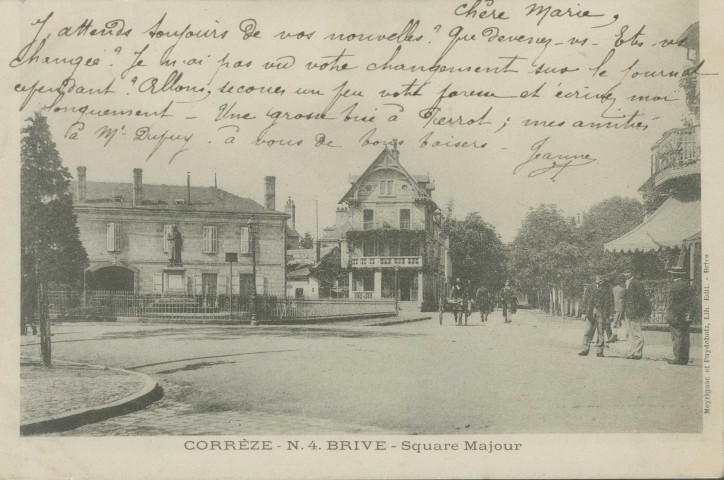 Chère Marie,
J'attends toujours de vos nouvelles? Que devenez-vs- Etes-vs
changée? Je n'ai pas vu votre changement sur le journal
cependant? Allons, secouez un peu votre paresse et écrivez moi
longuement - Une grosse bise à Pierrot; mes amitiés
à Mr Dupuy. à vous de bons baisers -
Jeanne
CORRÈZE - N. 4. BRIVE - Square Majour
Meyrignac et Puydebois, Lib. Edit. - Brive